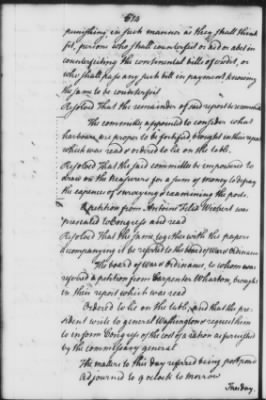 574
punishing in such manner as they shall think
fit, persons who shall counterfeit or aid or abet in
counterfeiting the continental bills of credit, or
who shall pass any such bill in payment knowing
the same to be counterfeit
Resolved That the remainder of said report be recommitted
The committee appointed to consider what
harbours are proper to be fortified, brought in their report
which was read & ordered to lie on the table.
Resolved That the said committee be empowered to
draw on the treasurers for a sum of money to defray
the expence of surveying & examining the ports.
A petition from Antoine Felix Wiebert was
presented to Congress and read
Resolved That the same together with the papers
accompanying it be referred to the board of War & Ordinance
The board of War & Ordinance, to whom was
referred a petition from Carpenter Wharton, brought
in their report which was read
Ordered to lie on the table, and that the pre-
sident write to general Washington & request him
to inform Congress of the cost of a ration as furnished
by the commissary general
The matters to this day referred being postponed
Adjourned to 9 oClock to morrow
Tuesday,